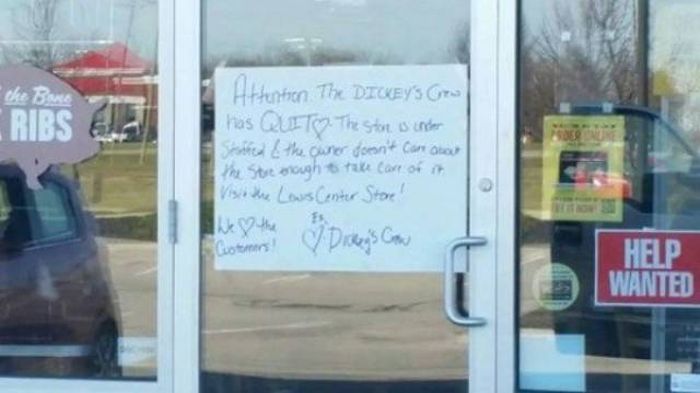 the Bone
RIBS
Attention The DICKEY'S Crew
has QUIT♡ The store is under
Staffed & the owner doesn't care about
the store enough to take care of it
Visit the Lewis Center Store!
We ♡ the
Customers!
Ex
♡ Dickey's Crew
ORDER ONLINE
HELP
WANTED